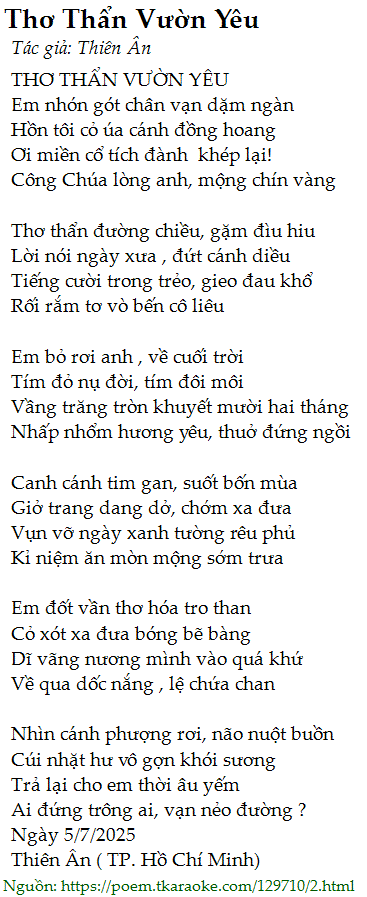 Thơ Thẩn Vườn Yêu
Tác giả: Thiên Ân
THƠ THẨN VƯỜN YÊU
Em nhón gót chân vạn dặm ngàn
Hồn tôi cỏ úa cánh đồng hoang
Ơi miền cổ tích đành  khép lại!
Công Chúa lòng anh, mộng chín vàng

Thơ thẩn đường chiều, gặm đìu hiu
Lời nói ngày xưa , đứt cánh diều
Tiếng cười trong trẻo, gieo đau khổ
Rối rắm tơ vò bến cô liêu

Em bỏ rơi anh , về cuối trời
Tím đỏ nụ đời, tím đôi môi
Vầng trăng tròn khuyết mười hai tháng
Nhấp nhổm hương yêu, thuở đứng ngồi

Canh cánh tim gan, suốt bốn mùa
Giở trang dang dở, chớm xa đưa
Vụn vỡ ngày xanh tường rêu phủ
Kỉ niệm ăn mòn mộng sớm trưa

Em đốt vần thơ hóa tro than
Cỏ xót xa đưa bóng bẽ bàng
Dĩ vãng nương mình vào quá khứ
Về qua dốc nắng , lệ chứa chan

Nhìn cánh phượng rơi, não nuột buồn
Cúi nhặt hư vô gợn khói sương
Trả lại cho em thời âu yếm
Ai đứng trông ai, vạn nẻo đường ?
Ngày 5/7/2025
Thiên Ân ( TP. Hồ Chí Minh)
Nguồn: https://poem.tkaraoke.com/129710/2.html